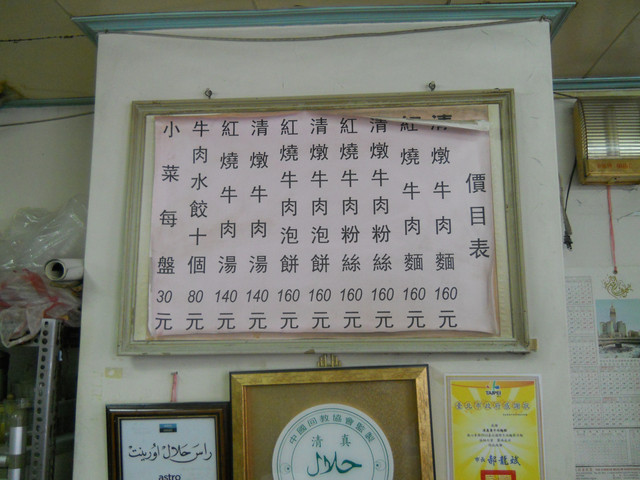 價目表
清燉牛肉麵 160元
紅燒牛肉麵 160元
清燉牛肉粉絲 160元
紅燒牛肉粉絲 160元
清燉牛肉泡餅 160元
紅燒牛肉泡餅 160元
清燉牛肉湯 140元
紅燒牛肉湯 140元
牛肉水餃十個 80元
小菜每盤 30元
راس حلال اورينت
astro
中國回教協會監製
清真
حلال
TAIPEI
市長 郝龍斌